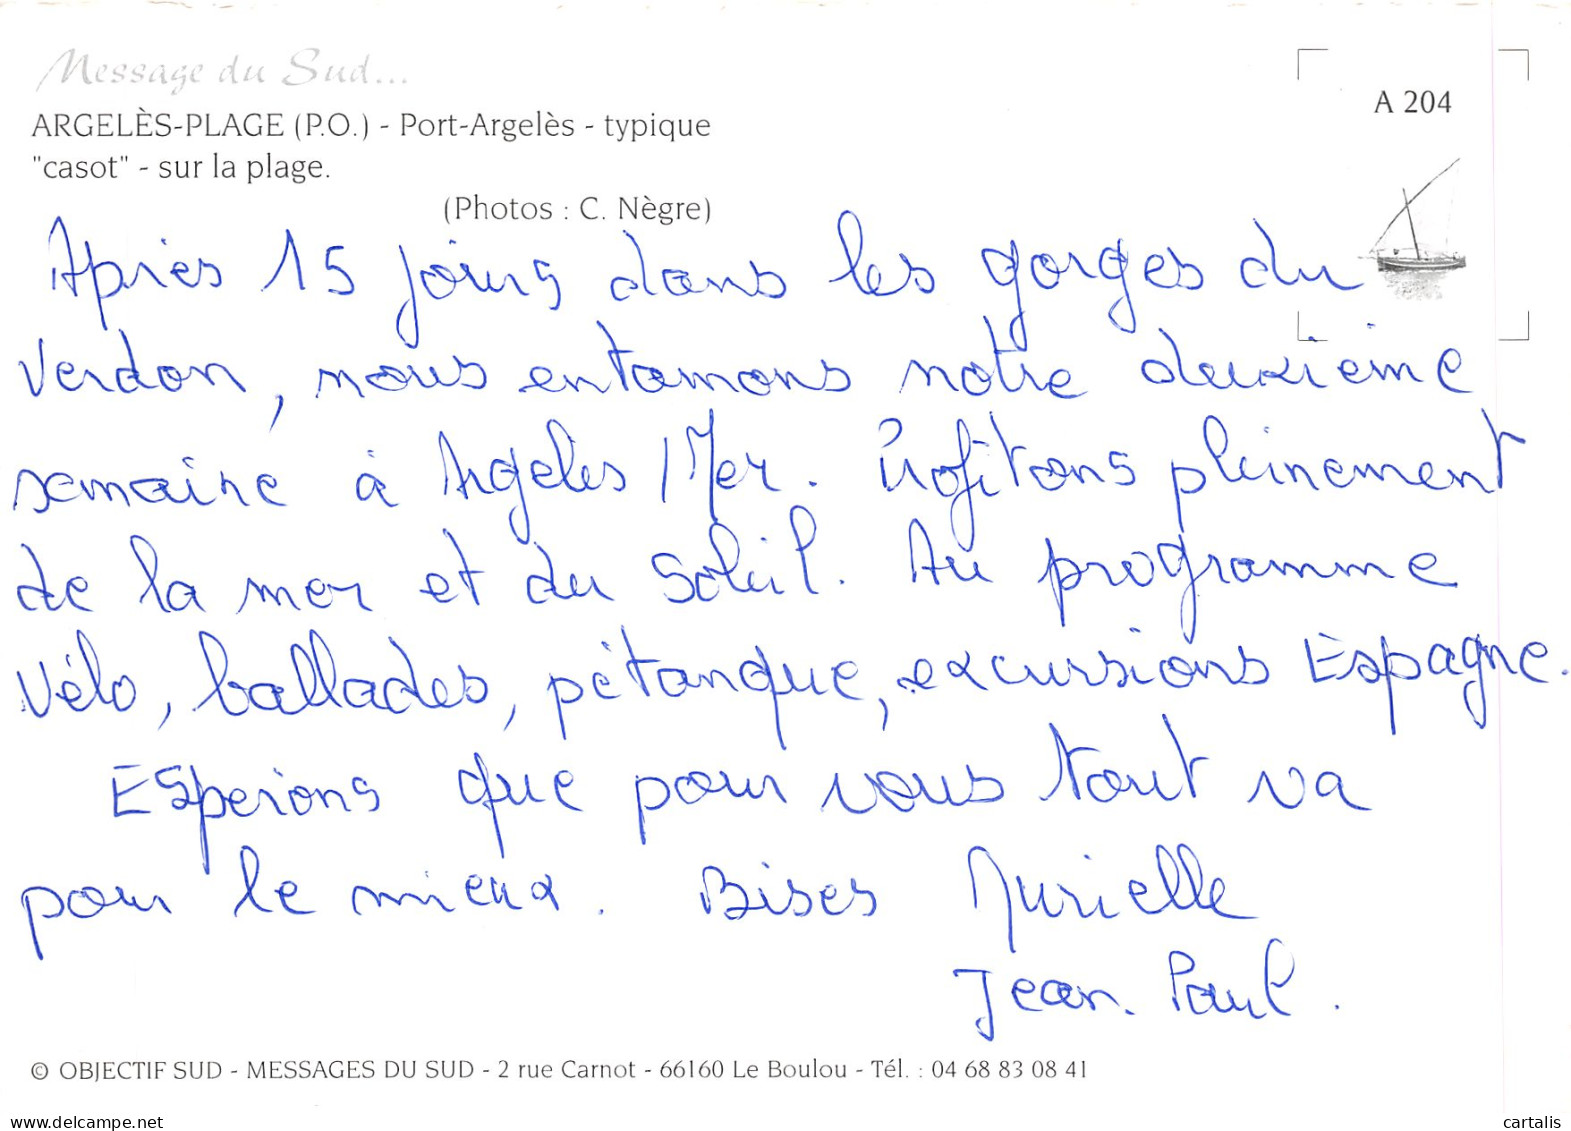 Message du Sud...
A 204
ARGELÈS-PLAGE (P.O.) - Port-Argelès - typique
"casot" - sur la plage.
(Photos : C. Nègre)
Après 15 jours dans les gorges du
Verdon, nous entamons notre deuxième
semaine à Argelès / Mer. Profitons pleinement
de la mer et du soleil. Au programme
Vélo, ballades, pétanque, excursions Espagne.
Esperons que pour vous tout va
pour le mieux. Bises Murielle
Jean. Paul.
© OBJECTIF SUD - MESSAGES DU SUD - 2 rue Carnot - 66160 Le Boulou - Tél. : 04 68 83 08 41
www.delcampe.net
cartalis